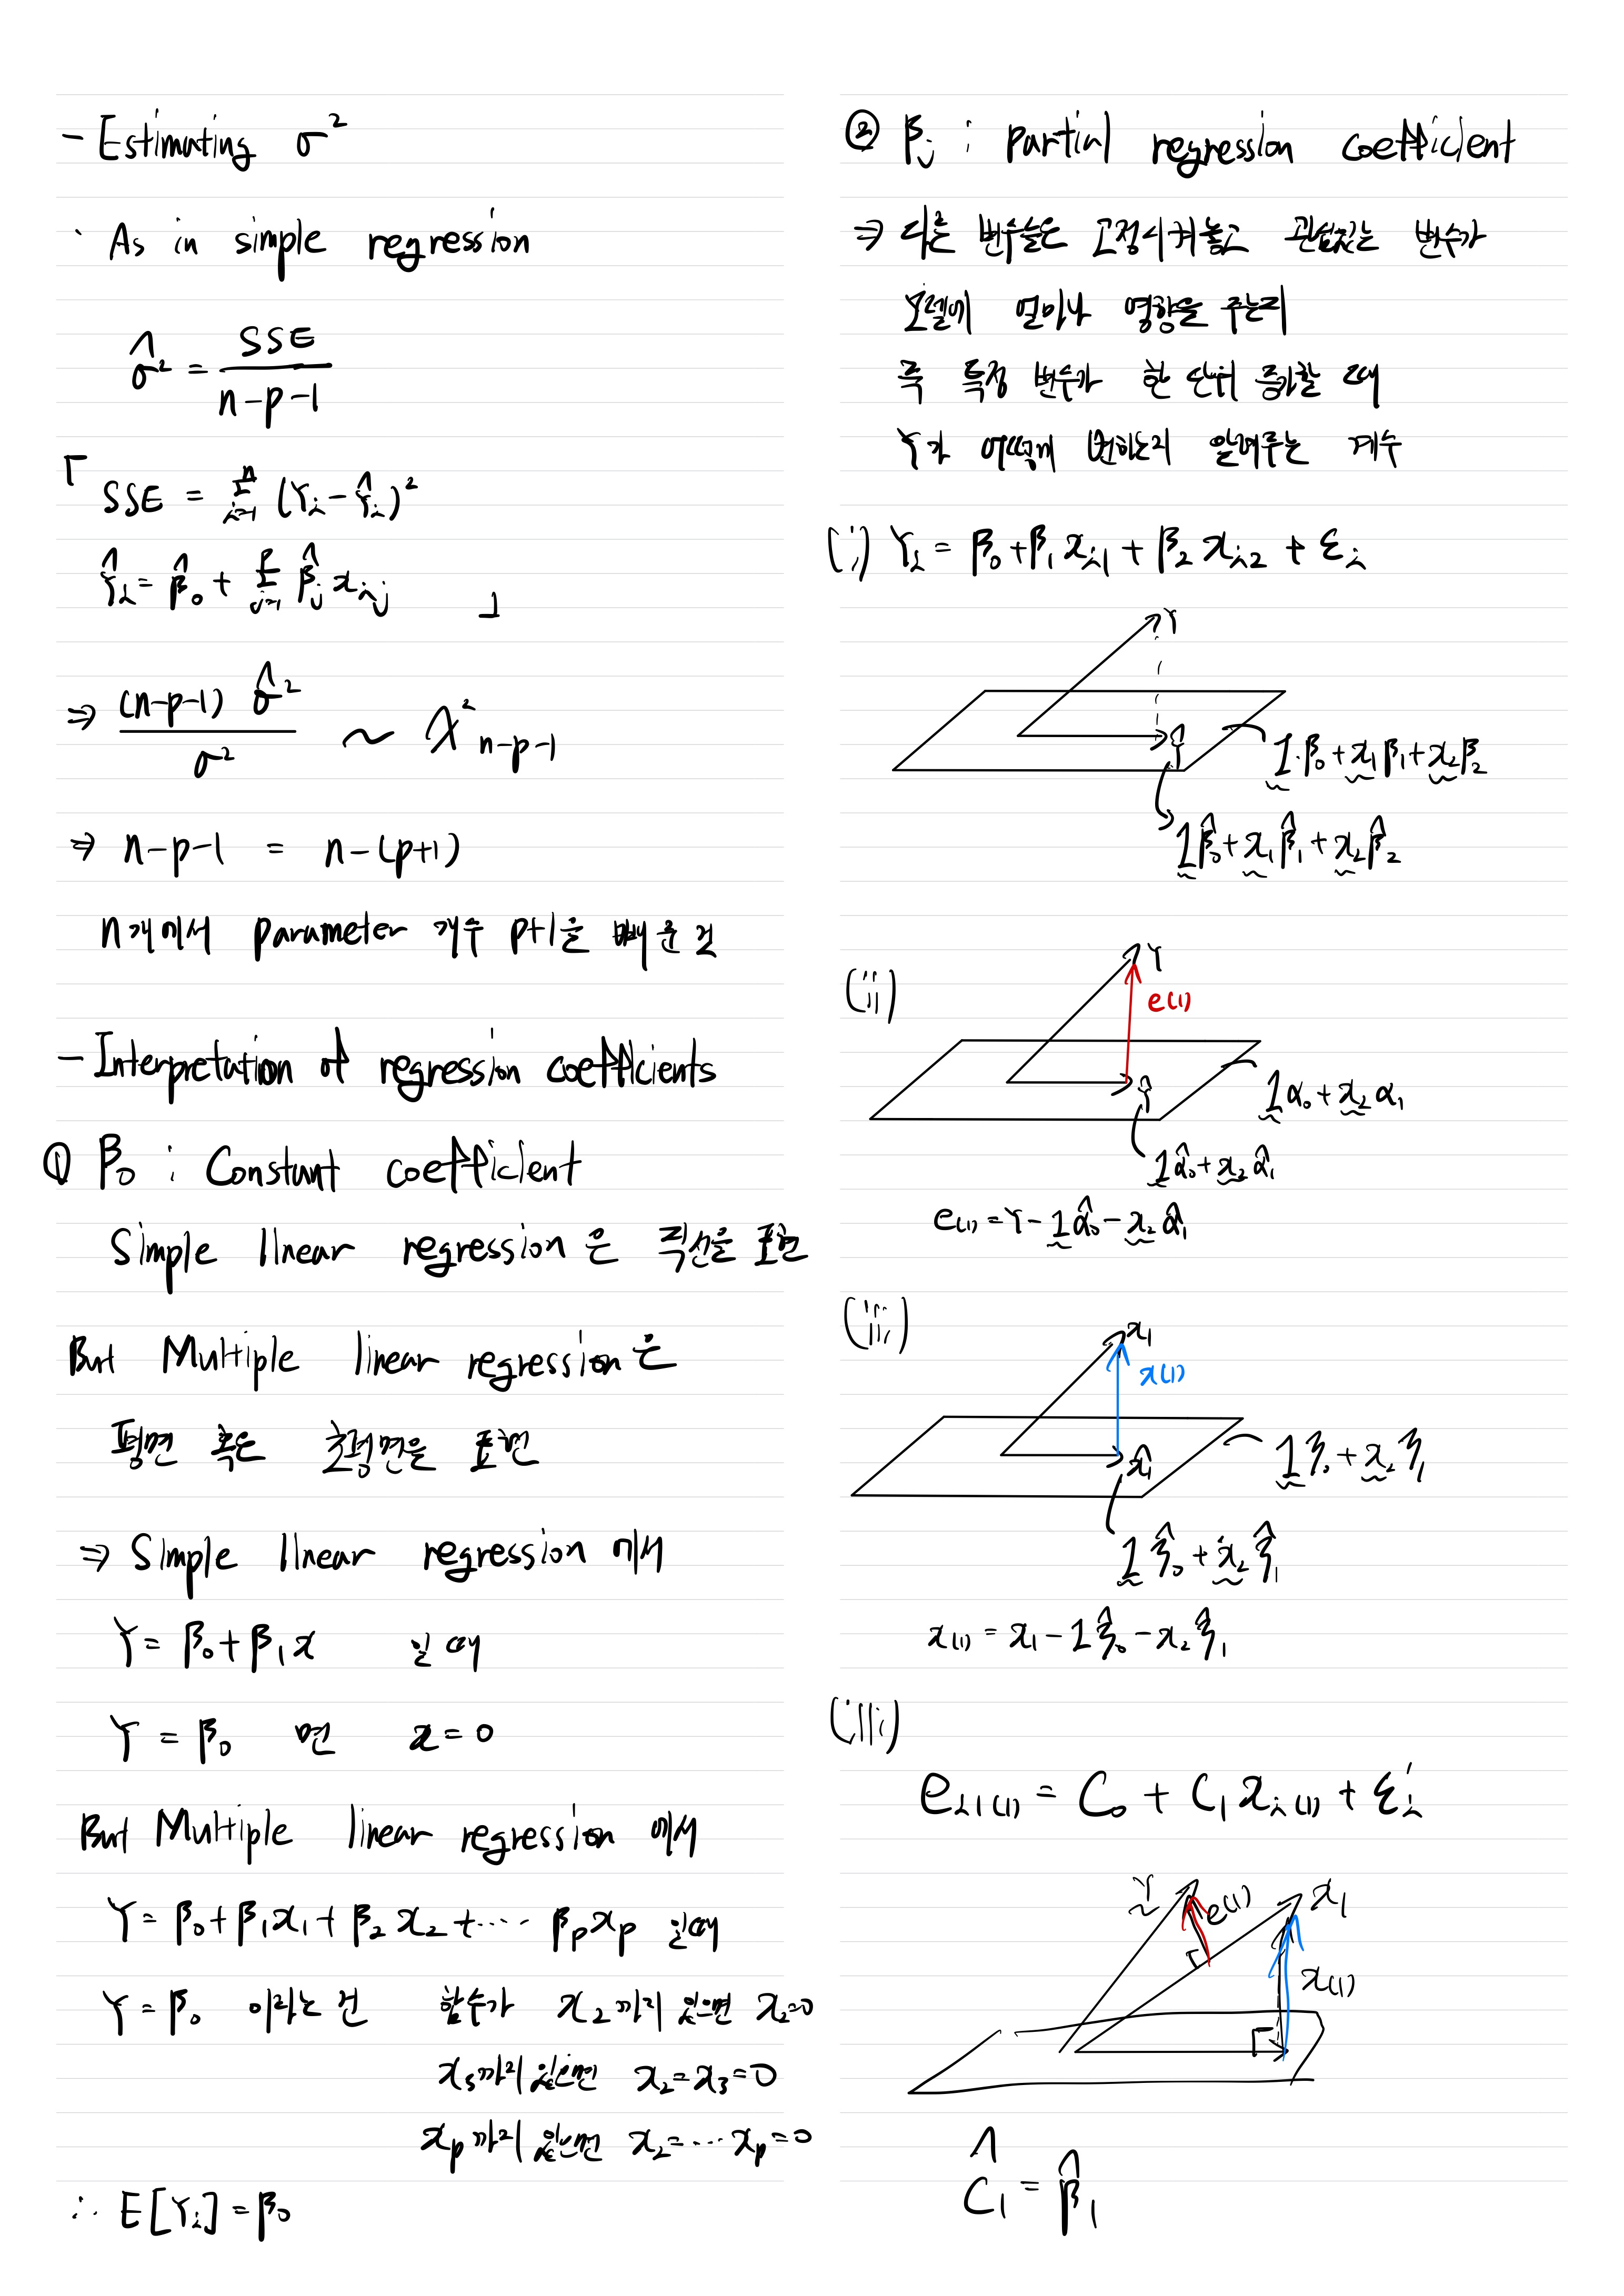 - Estimating σ²
· As in simple regression
σ̂² = SSE / (n-p-1)
「 SSE = Σ_{i=1}^{n} (Yᵢ - Ŷᵢ)²
Ŷᵢ = β̂₀ + Σ_{j=1}^{p} β̂ⱼ xᵢⱼ 」
⇒ (n-p-1) σ̂² / σ² ~ χ²_{n-p-1}
⇒ n-p-1 = n-(p+1)
n개에서 parameter 개수 p+1을 빼준 것
- Interpretation of regression coefficients
① β₀ : Constant coefficient
Simple linear regression은 직선을 표현
But Multiple linear regression은
평면 혹은 초평면을 표현
⇒ Simple linear regression 에서
Y = β₀ + β₁x 일 때
Y = β₀ 면 x = 0
But Multiple linear regression 에서
Y = β₀ + β₁x₁ + β₂x₂ + ···· βₚxₚ 일때
Y = β₀ 이라는 건 함수가 x₂까지 있으면 x₂=0
x₃까지 있으면 x₂=x₃=0
xₚ까지 있으면 x₂=···xₚ=0
∴ E[Yᵢ] = β₀
② βⱼ : partial regression coefficient
⇒ 다른 변수들은 고정시켜놓고 관심있는 변수가
모델에 얼마나 영향을 주는지
즉 특정 변수가 한 단위 증가할 때
Y가 어떻게 변하는지 알려주는 계수
(i) Yᵢ = β₀ + β₁xᵢ₁ + β₂xᵢ₂ + εᵢ
Y
Ŷ
1·β₀ + x₁β₁ + x₂β₂
1β̂₀ + x₁β̂₁ + x₂β̂₂
(ii)
Y
e(1)
Ŷ
1α₀ + x₂α₁
1α̂₀ + x₂α̂₁
e(1) = Y - 1α̂₀ - x₂α̂₁
(iii)
x₁
x(1)
x̂₁
1ξ₀ + x₂ξ₁
1ξ̂₀ + x₂ξ̂₁
x(1) = x₁ - 1ξ̂₀ - x₂ξ̂₁
(iiii)
eᵢ₁(1) = C₀ + C₁xᵢ(1) + εᵢ'
Y
e(1)
x₁
x(1)
Ĉ₁ = β̂₁